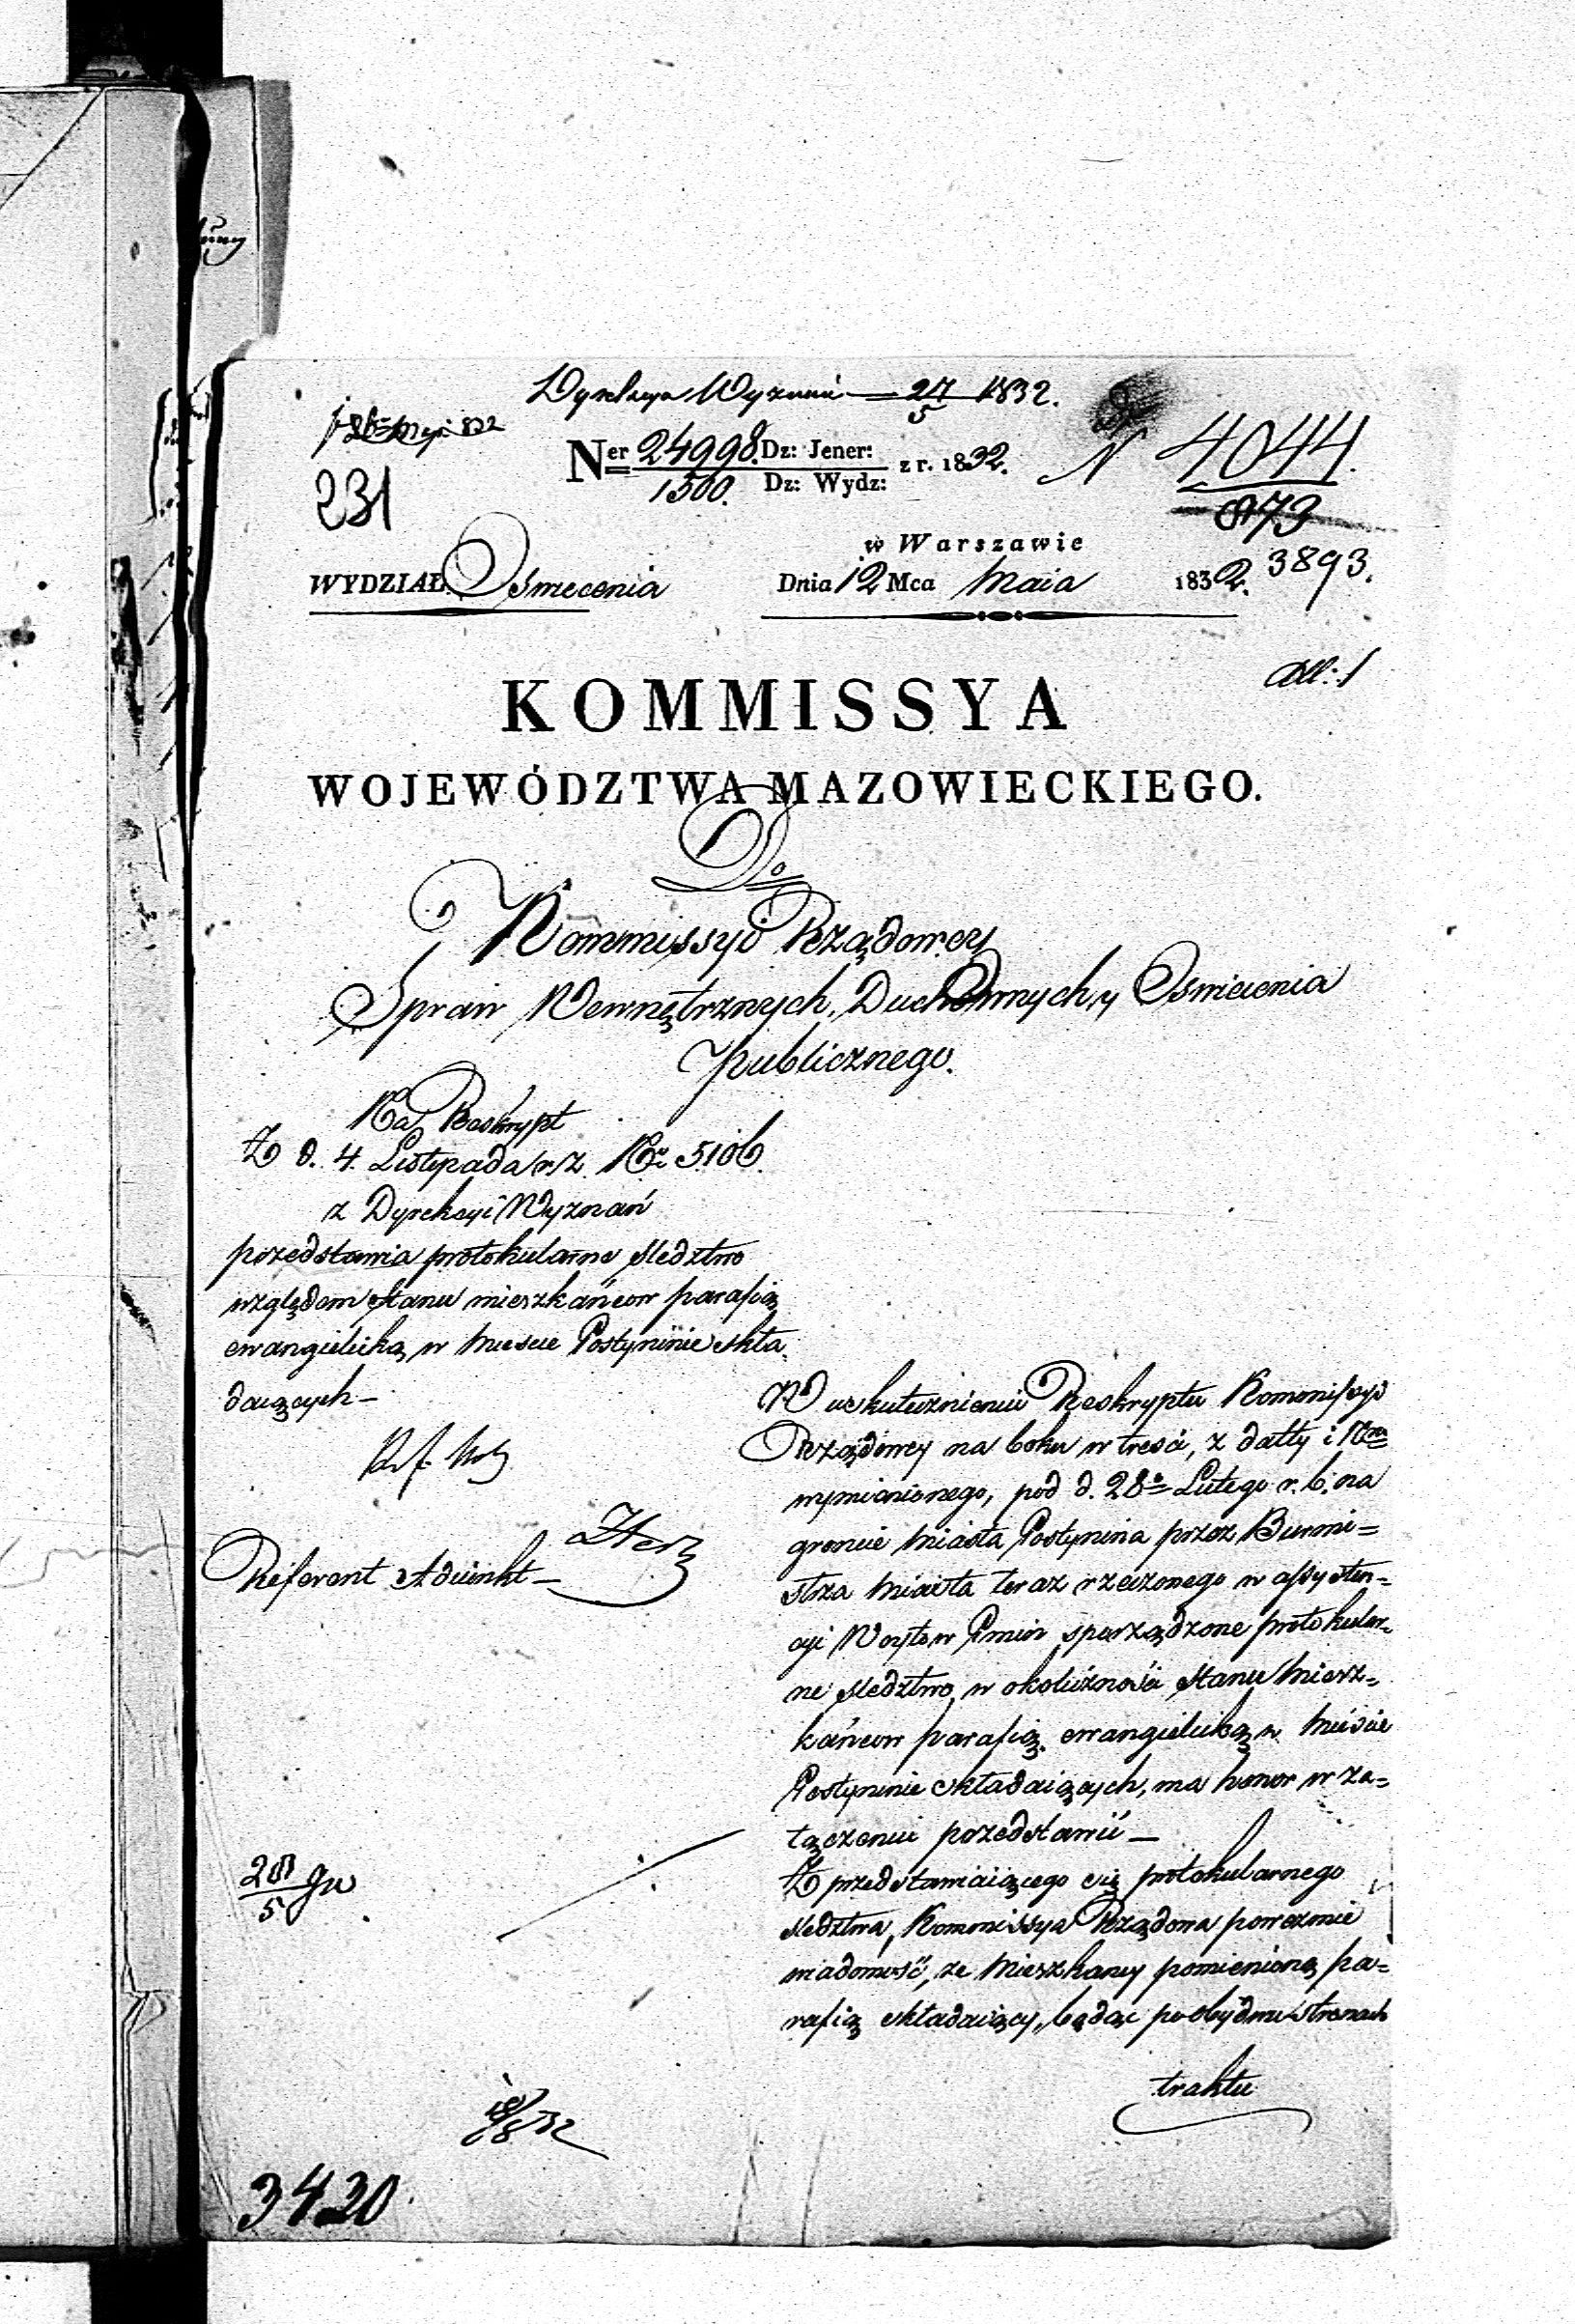 Dyrekcya Wyznań — 27/5 1832.
231
Ner 24998. Dz: Jener: z r. 1832. N 4044.
1500. Dz: Wydz:
873
w Warszawie
3893.
WYDZIAŁ Oświecenia Dnia 12 Mca Maia 1832.
All: 1
KOMMISSYA
WOJEWÓDZTWA MAZOWIECKIEGO.
Do
Kommissyi Rządowey
Spraw Wewnętrznych, Duchownych y Oświecenia
Publicznego.
Na Reskrypt
Z d. 4. Listopada r. z. Nr 5106.
z Dyrekcyi Wyznań
przedstawia protokularne sledztwo
względem stanu mieszkańcow parafią
ewangielicką w Miescie Gostyninie skła-
daiących —
Referent Adiunkt —
W uskutecznieniu Reskryptu Kommissyi
Rządowey na boku w tresci, z datty i Nru
wymienionego, pod d. 28o Lutego r. b. na
gruncie Miasta Gostynina przez Burmi=
strza Miasta teraz rzeczonego w assysten=
cyi Woytow Gmin sporządzone protokular=
ne sledztwo, w okoliczności stanu Miesz=
kańcow parafią ewangielicką w Mieście
Gostyninie składaiących, ma honor w za=
łączeniu przedstawić —
Z przedstawiaiącego się protokularnego
sledztwa, Kommissya Rządowa powezmie
wiadomość, że Mieszkancy pomienioną pa=
rafią składaiący, będąc po obydwu stronach
traktu
28/5
3420